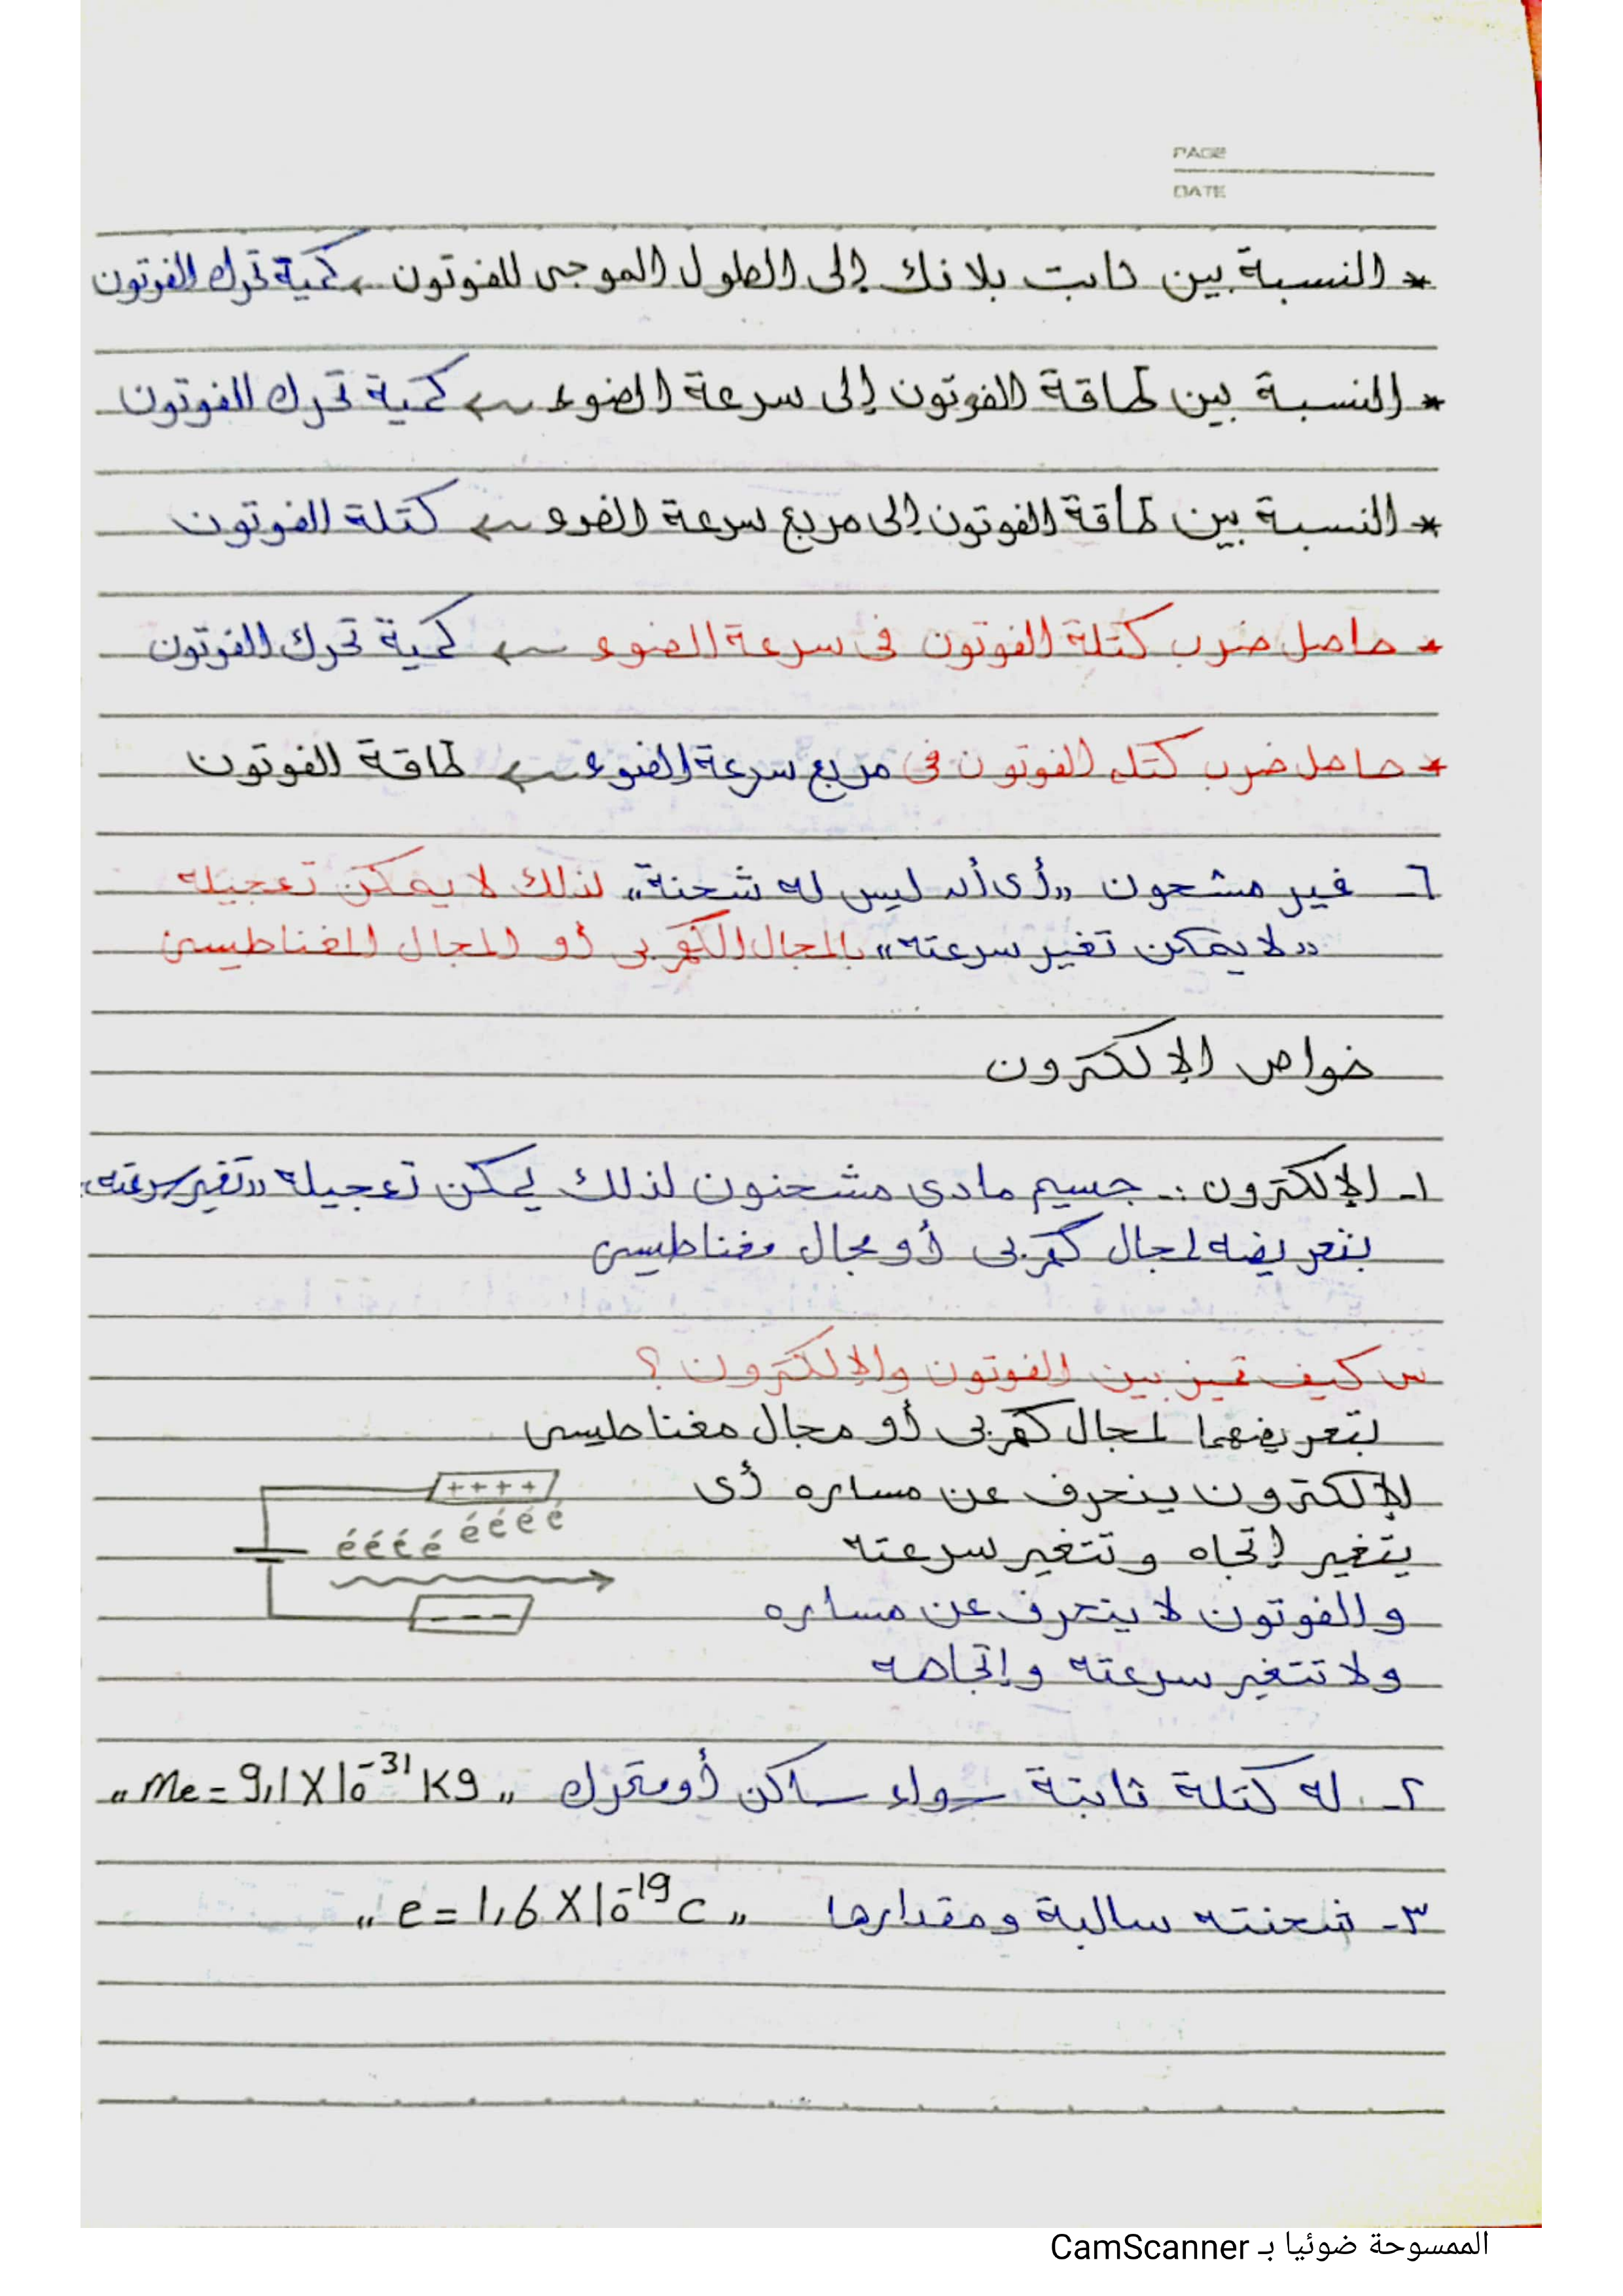 PAGE
DATE
* النسبة بين ثابت بلانك إلى الطول الموجى للفوتون ← كمية تحرك الفوتون
* النسبة بين طاقة الفوتون إلى سرعة الضوء ← كمية تحرك الفوتون
* النسبة بين طاقة الفوتون إلى مربع سرعة الضوء ← كتلة الفوتون
* حاصل ضرب كتلة الفوتون فى سرعة الضوء ← كمية تحرك الفوتون
* حاصل ضرب كتله الفوتون فى مربع سرعة الضوء ← طاقة الفوتون
٦- غير مشحون "أى أنه ليس له شحنة" لذلك لا يمكن تعجيله
"لا يمكن تغير سرعته" بالمجال الكهربى أو المجال المغناطيسى
خواص الإلكترون
١- الإلكترون :- جسيم مادى مشحنون لذلك يمكن تعجيله "تغير سرعته"
بتعريضه لمجال كهربى أو مجال مغناطيسى
س كيف تميز بين الفوتون والإلكترون ؟
بتعريضهما لمجال كهربى أو مجال مغناطيسى
الإلكترون ينحرف عن مساره أى
يتغير إتجاه وتتغير سرعته
والفوتون لا ينحرف عن مساره
ولا تتغير سرعته وإتجاهه
++++
é é é é é é é é
---
٢- له كتلة ثابتة سواء ساكن أو متحرك "me = 9,1 X 10⁻³¹ Kg"
٣- شحنته سالبة ومقدارها "e = 1,6 X 10⁻¹⁹ C"
الممسوحة ضوئيا بـ CamScanner